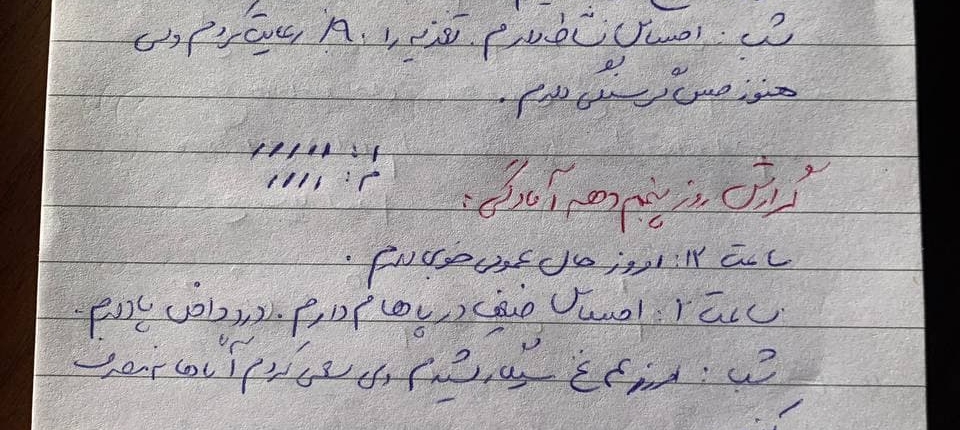 شب: احساس نشاط ندارم. تغذیه را ۸۰٪ رعایت کردم ولی
هنوز حس گرسنگی دارم.
ا: ااااا
م: اااا
گزارش روز پنجم دهه آمادگی:
ساعت ۱۲: امروز حال عمومی خوبی ندارم.
ساعت ۲: احساس ضعف در پاها م دارم. درد داخل پا دارم.
شب: امروز هم سیگار کشیدم ولی سعی کردم